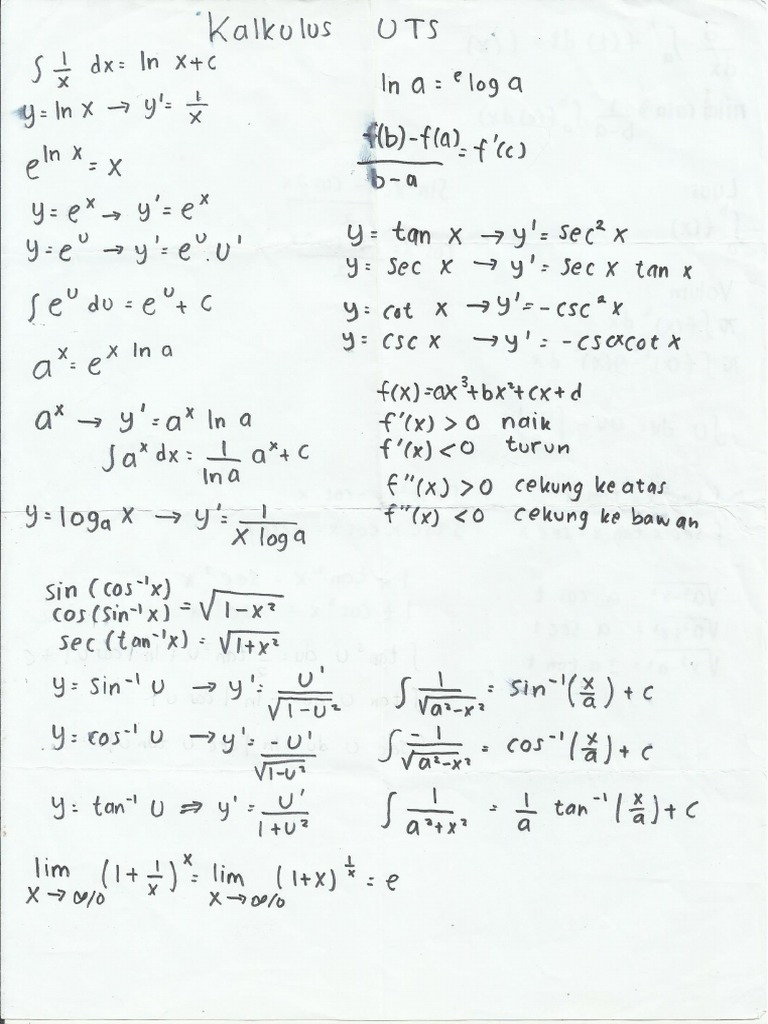 Kalkulus UTS
∫ 1/x dx = ln x + c
y = ln x → y' = 1/x
e^(ln x) = x
y = e^x → y' = e^x
y = e^u → y' = e^u . u'
∫ e^u du = e^u + c
a^x = e^(x ln a)
a^x → y' = a^x ln a
∫ a^x dx = 1/(ln a) a^x + c
y = log_a x → y' = 1/(x log a)
ln a = ^e log a
(f(b) - f(a))/(b - a) = f'(c)
y = tan x → y' = sec² x
y = sec x → y' = sec x tan x
y = cot x → y' = -csc² x
y = csc x → y' = -csc x cot x
f(x) = ax³ + bx² + cx + d
f'(x) > 0 naik
f'(x) < 0 turun
f''(x) > 0 cekung ke atas
f''(x) < 0 cekung ke bawah
sin (cos⁻¹ x)
cos (sin⁻¹ x) = √(1 - x²)
sec (tan⁻¹ x) = √(1 + x²)
y = sin⁻¹ u → y' = u'/√(1 - u²)
∫ 1/√(a² - x²) = sin⁻¹ (x/a) + c
y = cos⁻¹ u → y' = -u'/√(1 - u²)
∫ -1/√(a² - x²) = cos⁻¹ (x/a) + c
y = tan⁻¹ u ⇒ y' = u'/(1 + u²)
∫ 1/(a² + x²) = 1/a tan⁻¹ (x/a) + c
lim x → ∞/0 (1 + 1/x)^x = lim x → ∞/0 (1 + x)^(1/x) = e